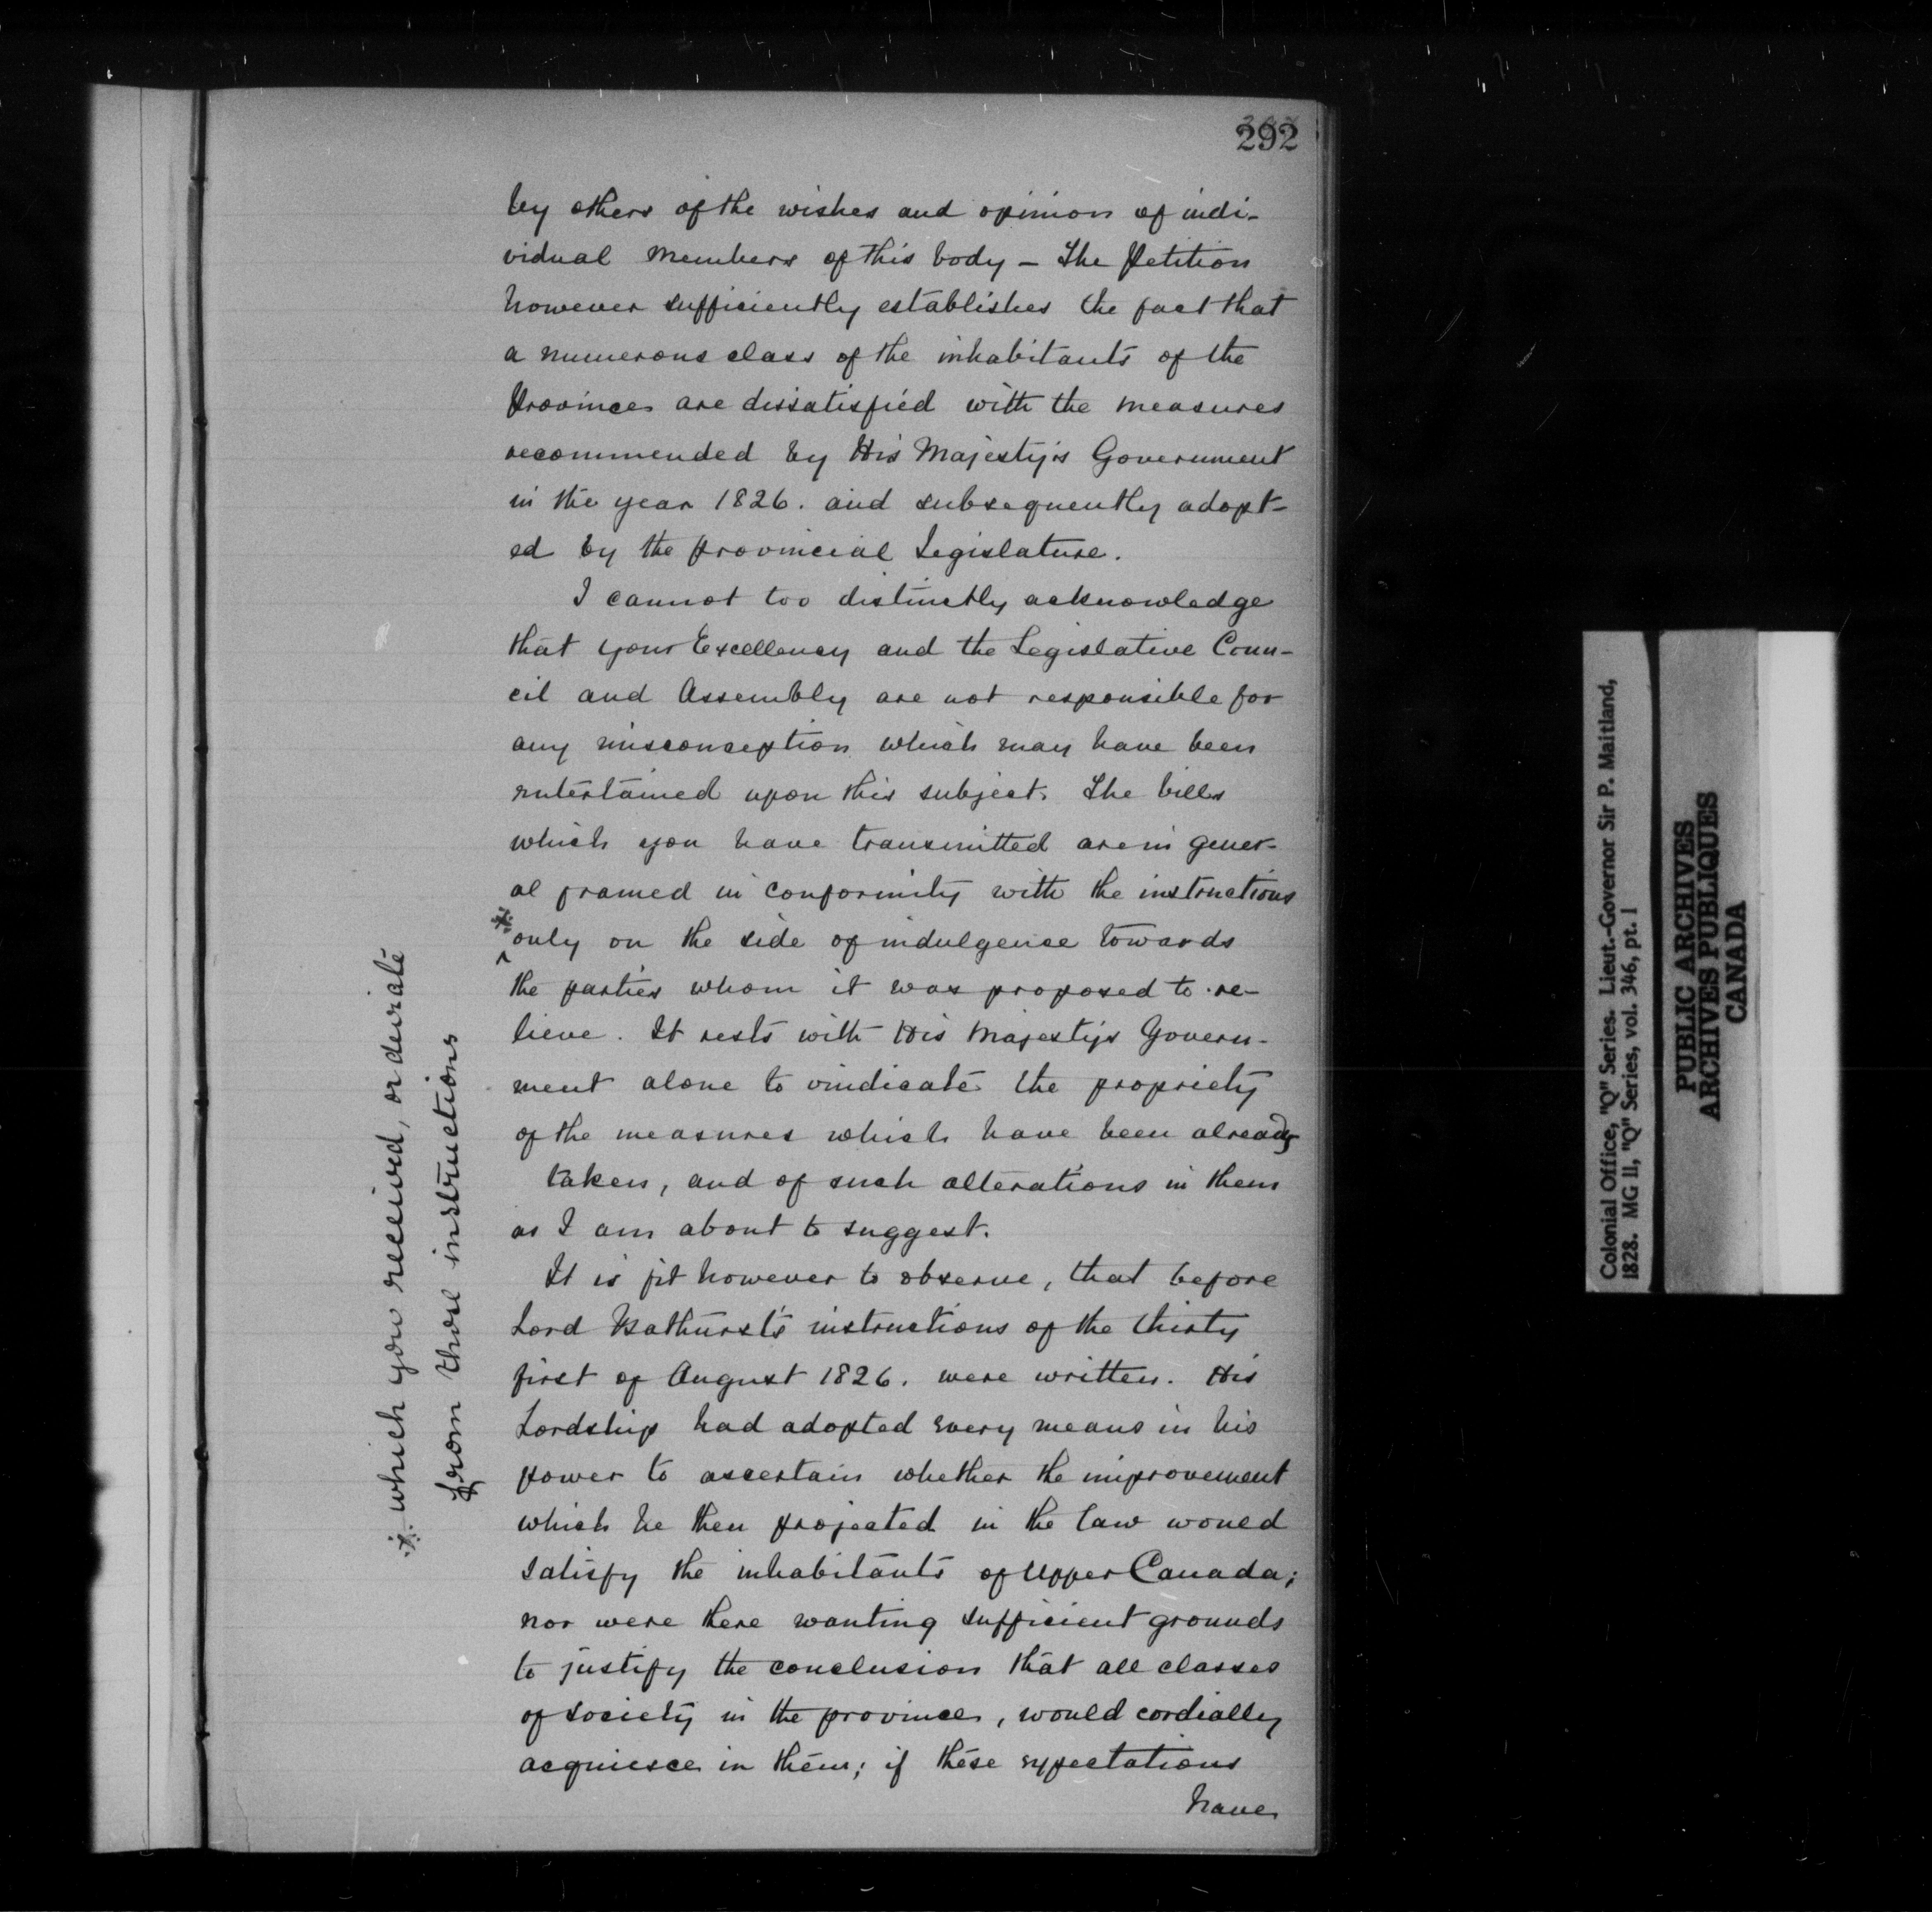 292
by others of the wishes and opinion of indi-
vidual members of this body – The Petition
however sufficiently establishes the fact that
a numerous class of the inhabitants of the
Province are dissatisfied with the measures
recommended by His Majesty's Government
in the year 1826. and subsequently adopt-
ed by the provincial Legislature.
I cannot too distinctly acknowledge
that your Excellency and the Legislative Coun-
cil and Assembly are not responsible for
any misconception which may have been
entertained upon this subject. The bills
which you have transmitted are in gener-
al framed in conformity with the instructions
※ only on the side of indulgence towards
the parties whom it was proposed to re-
lieve. It rests with His Majesty's Govern-
ment alone to vindicate the propriety
of the measures which have been already
taken, and of such alterations in them
as I am about to suggest.
It is fit however to observe, that before
Lord Bathurst's instructions of the thirty
first of August 1826. were written. His
Lordship had adopted every means in his
power to ascertain whether the improvement
which he then projected in the law would
satisfy the inhabitants of Upper Canada;
nor were there wanting sufficient grounds
to justify the conclusion that all classes
of society in the province, would cordially
acquiesce in them; if these expectations
have
※ which you received, or deviate
from those instructions
Colonial Office, "Q" Series. Lieut.-Governor Sir P. Maitland,
1828. MG 11, "Q" Series, vol. 346, pt. 1
PUBLIC ARCHIVES
ARCHIVES PUBLIQUES
CANADA